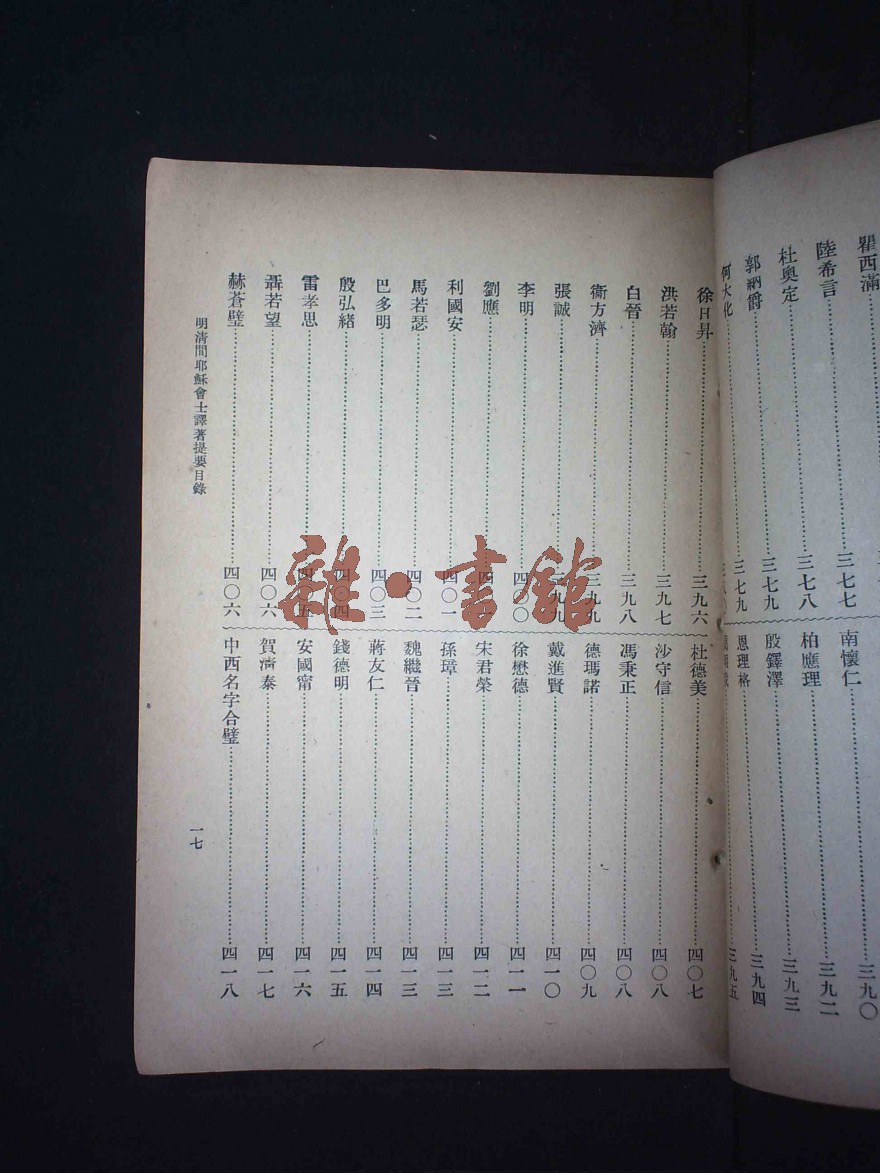 瞿西滿
陸希言……三七七
杜奧定……三七八
郭納爵……三七九
何大化……三七九
南懷仁……三九〇
柏應理……三九二
殷鐸澤……三九三
恩理格……三九四
三九五
徐日昇……三九六
洪若翰……三九七
白晉……三九八
衞方濟……三九九
張誠……三九九
李明……四〇〇
劉應
利國安……四〇一
馬若瑟……四〇二
巴多明……四〇三
殷弘緒……四〇四
雷孝思……四〇五
聶若望……四〇六
赫蒼璧……四〇六
杜德美……四〇七
沙守信……四〇八
馮秉正……四〇八
德瑪諾……四〇九
戴進賢……四一〇
徐懋德……四一一
宋君榮……四一二
孫璋……四一三
魏繼晉……四一三
蔣友仁……四一四
錢德明……四一五
安國甯……四一六
賀清泰……四一七
中西名字合璧……四一八
明清間耶穌會士譯著提要目錄
一七
雜·書館